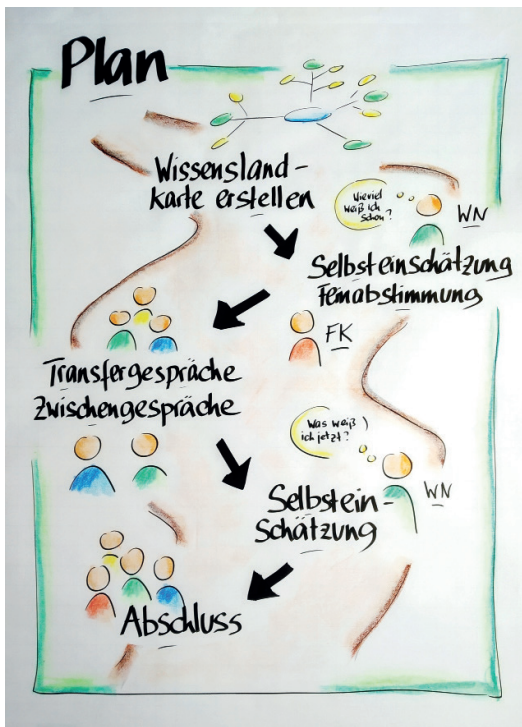 Plan
Wissensland-
karte erstellen
Wieviel
weiß ich
schon?
WN
Selbsteinschätzung
Feinabstimmung
FK
Transfergespräche
Zwischengespräche
Was weiß
ich jetzt?
WN
Selbstein-
schätzung
Abschluss